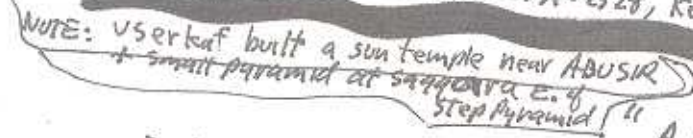 2528,
NOTE: Userkaf built a sun temple near ABUSIR
+ small pyramid at saqqara E. of
Step Pyramid "